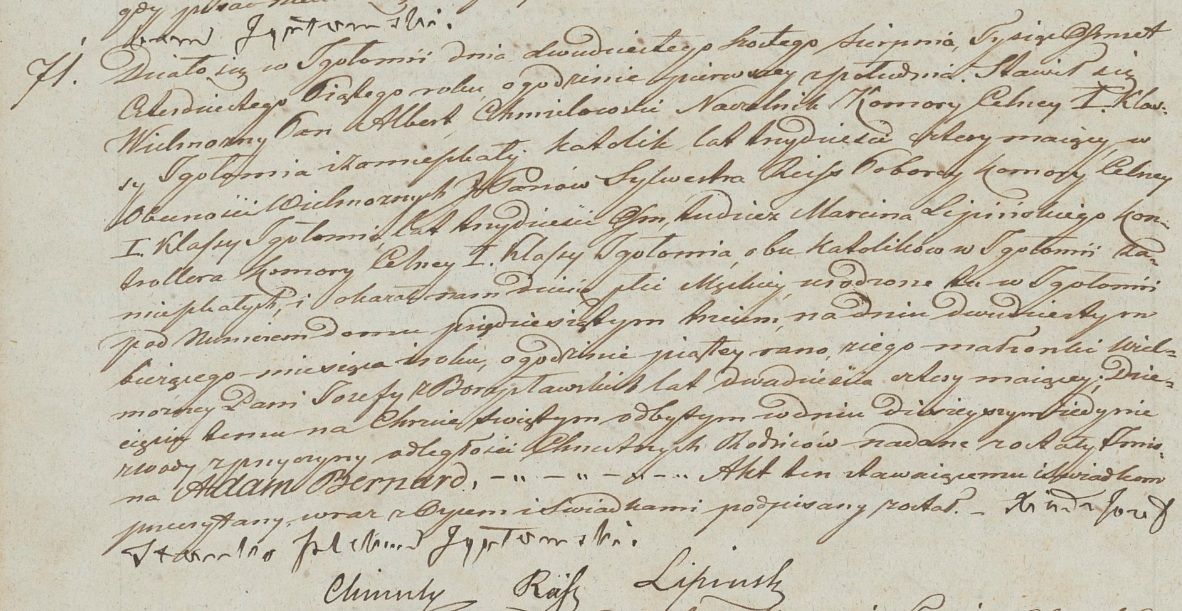 gdy pisać nie
71.
Działo się w Igołomii dnia dwudziestego szostego Sierpnia, Tysiąc Ośmset
Czterdziestego Piątego roku o godzinie pierwszey z południa. Stawił się
Wielmożny Pan Albert Chmielowski Naczelnik Komory Celney I. Klas-
sy Igołomia i tamże spłaty katolik, lat trzydzieści cztery maiący w
Obecności Wielmożnych JPanów Sylwestra Reiss Poborcy Komory Celney
I. Klassy Igołomia, lat trzydzieści Ośm, tudzież Marcina Lipińskiego Kon-
trollera Komory Celney I. Klassy Igołomia, obu katolików w Igołomii za-
mieszkałych, i okazał nam dziecię płci Męzkiey, urodzone tu w Igołomii
pod Numerem domu pięćdziesiątym trzecim, na dniu dwudziestym
bieżącego miesiąca i roku, o godzinie piątey rano, z iego małżonki Wiel-
możney Pani Józefy z Borzysławskich lat dwadzieścia cztery maiącey; Dzie-
cięciu temu na Chrzcie świętym odbytym w dniu dzisieyszym iedynie
z wody z przyczyny odległości Chrzestnych Rodziców nadane zostały Imio-
na Adam Bernard, - „ - „ - „ - „ Akt ten stawaiącemu i świadkom
przeczytany, wraz z Oycem i Świadkami podpisany został. - Xiądz Józef
Chmiel Reiss Lipinsk